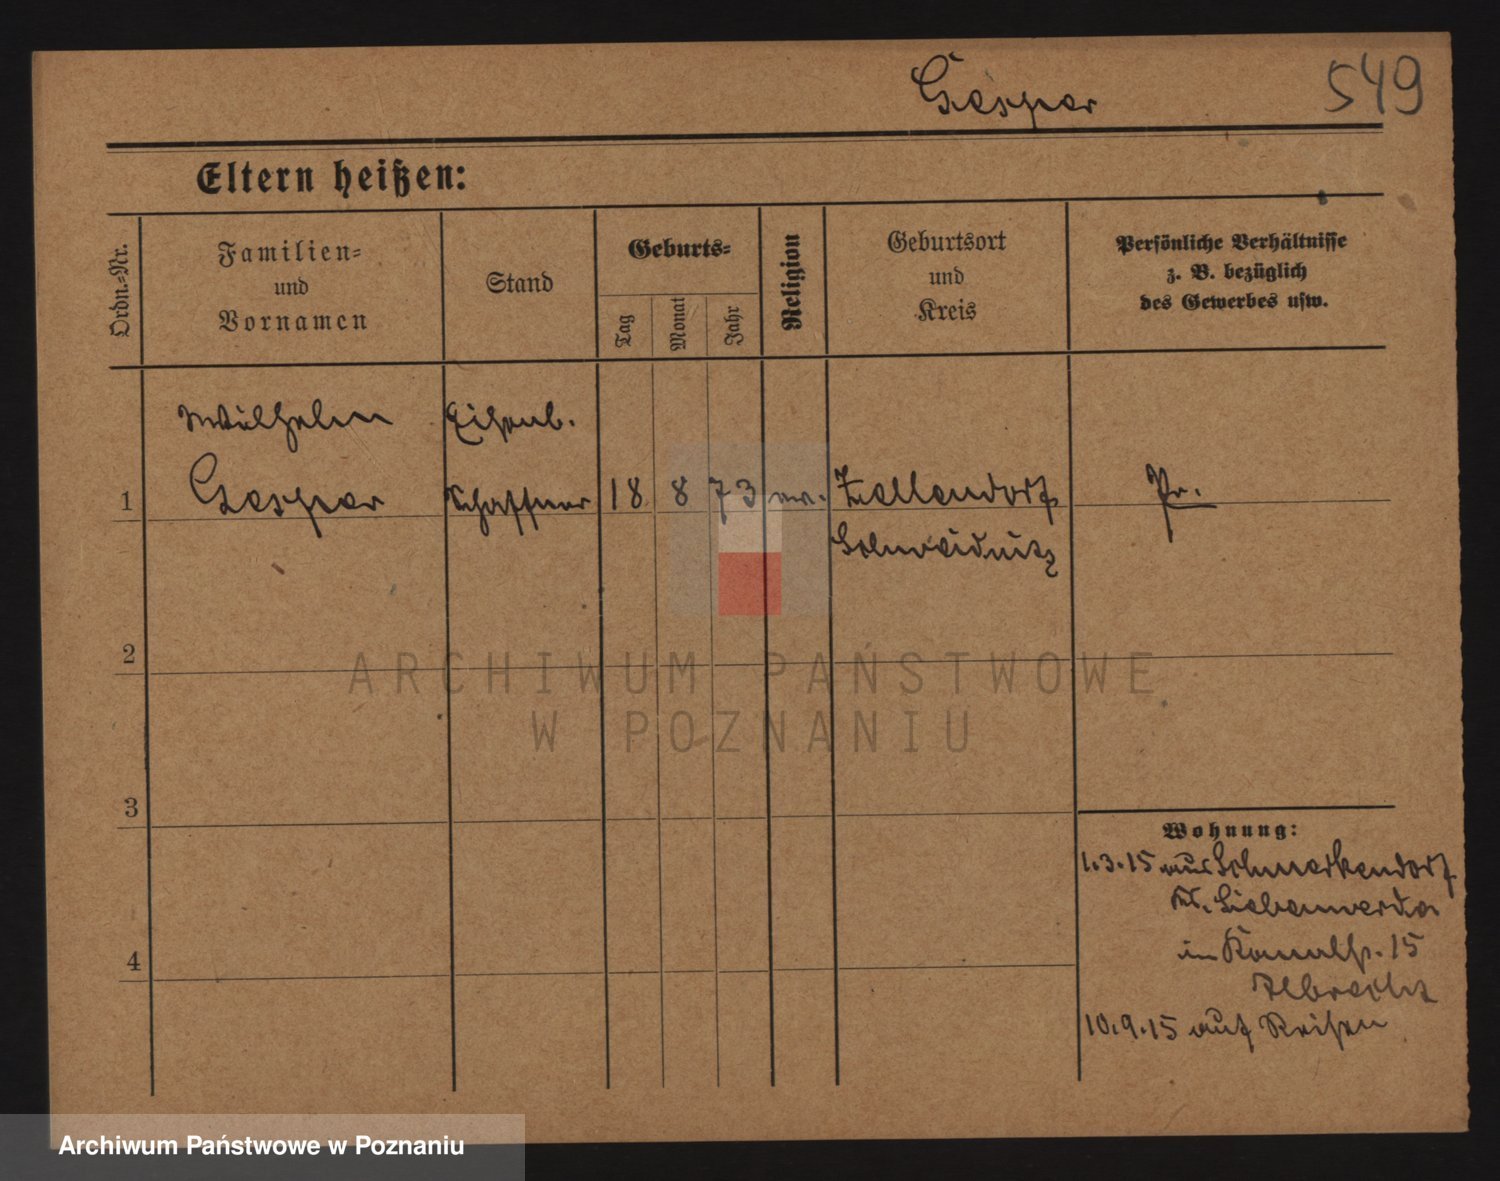 Gesper
549
Eltern heißen:
Ordn.-Nr.
Familien-
und
Vornamen
Stand
Geburts-
Tag
Monat
Jahr
Religion
Geburtsort
und
Kreis
Persönliche Verhältnisse
z. B. bezüglich
des Gewerbes usw.
Wilhelm
Eisenb.
1
Gesper
Schaffner
18
8
73
ev.
Zedlitz
Schweidnitz
Pr.
2
3
4
Wohnung:
1.3.15 aus
Kr. Liebenwerda
in Kanalstr. 15
Albrecht
10.9.15 auf Reisen
ARCHIWUM PAŃSTWOWE
W POZNANIU
Archiwum Państwowe w Poznaniu